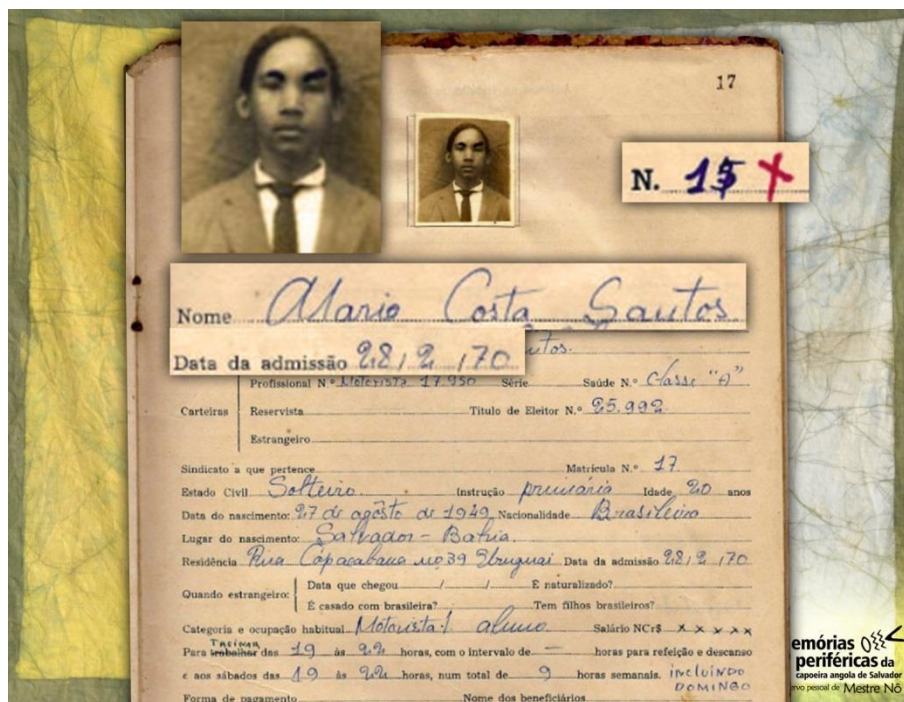 17
N. 15 X
Nome Mario Costa Santos.
Data da admissão 28 / 2 / 70
ntos.
Profissional N.º Motorista 17.950 Série Saúde N.º Classe "A"
Carteiras
Reservista Titulo de Eleitor N.º 25.992
Estrangeiro
Sindicato a que pertence Matrícula N.º 17
Estado Civil Solteiro. Instrução primária Idade 20 anos
Data do nascimento: 27 de agôsto de 1949 Nacionalidade Brasileira
Lugar do nascimento: Salvador - Bahia.
Residência Rua Copacabana nº 39 Uruguai Data da admissão 28 / 2 / 70
Quando estrangeiro:
Data que chegou / / É naturalizado?
É casado com brasileira? Tem filhos brasileiros?
Categoria e ocupação habitual Motorista / aluno Salário NCr$ x x x x x
Para trabalhar das 19 às 22 horas, com o intervalo de — horas para refeição e descanso
e aos sábados das 19 às 22 horas, num total de 9 horas semanais. incluindo
DOMINGO
Forma de pagamento Nome dos beneficiários
emórias
periféricas da
capoeira angola de Salvador
rvo pessoal de Mestre Nô